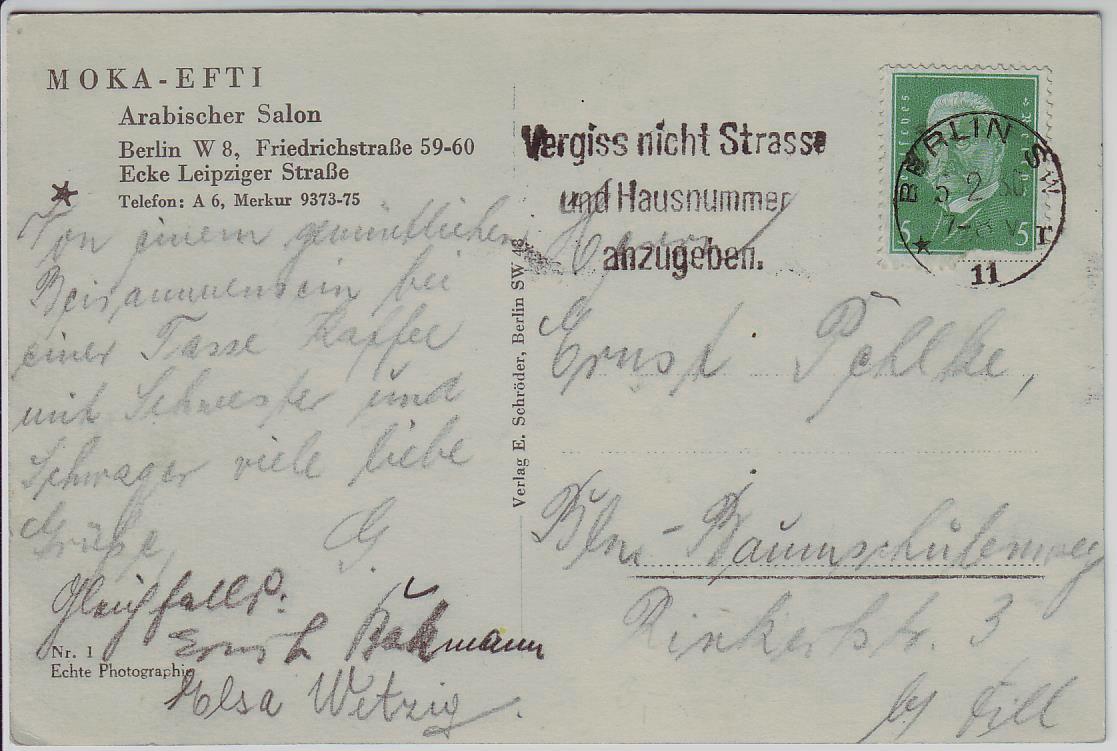 MOKA-EFTI
Arabischer Salon
Berlin W 8, Friedrichstraße 59-60
Ecke Leipziger Straße
Telefon: A 6, Merkur 9373-75
Von einem gemütlichen
Beisammensein bei
einer Tasse Kaffee
mit Schwester und
Schwager viele liebe
Grüße, G
Gleichfalls.
Ernst
Nr. 1
Echte Photographie
Elsa Wetzig.
Verlag E. Schröder, Berlin SW 48.
Vergiss nicht Strasse
und Hausnummer
anzugeben.
BERLIN SW
11
5
5
Herrn
Ernst Pehlke,
Bln-Baumschulenweg
Rinkartstr. 3
b/